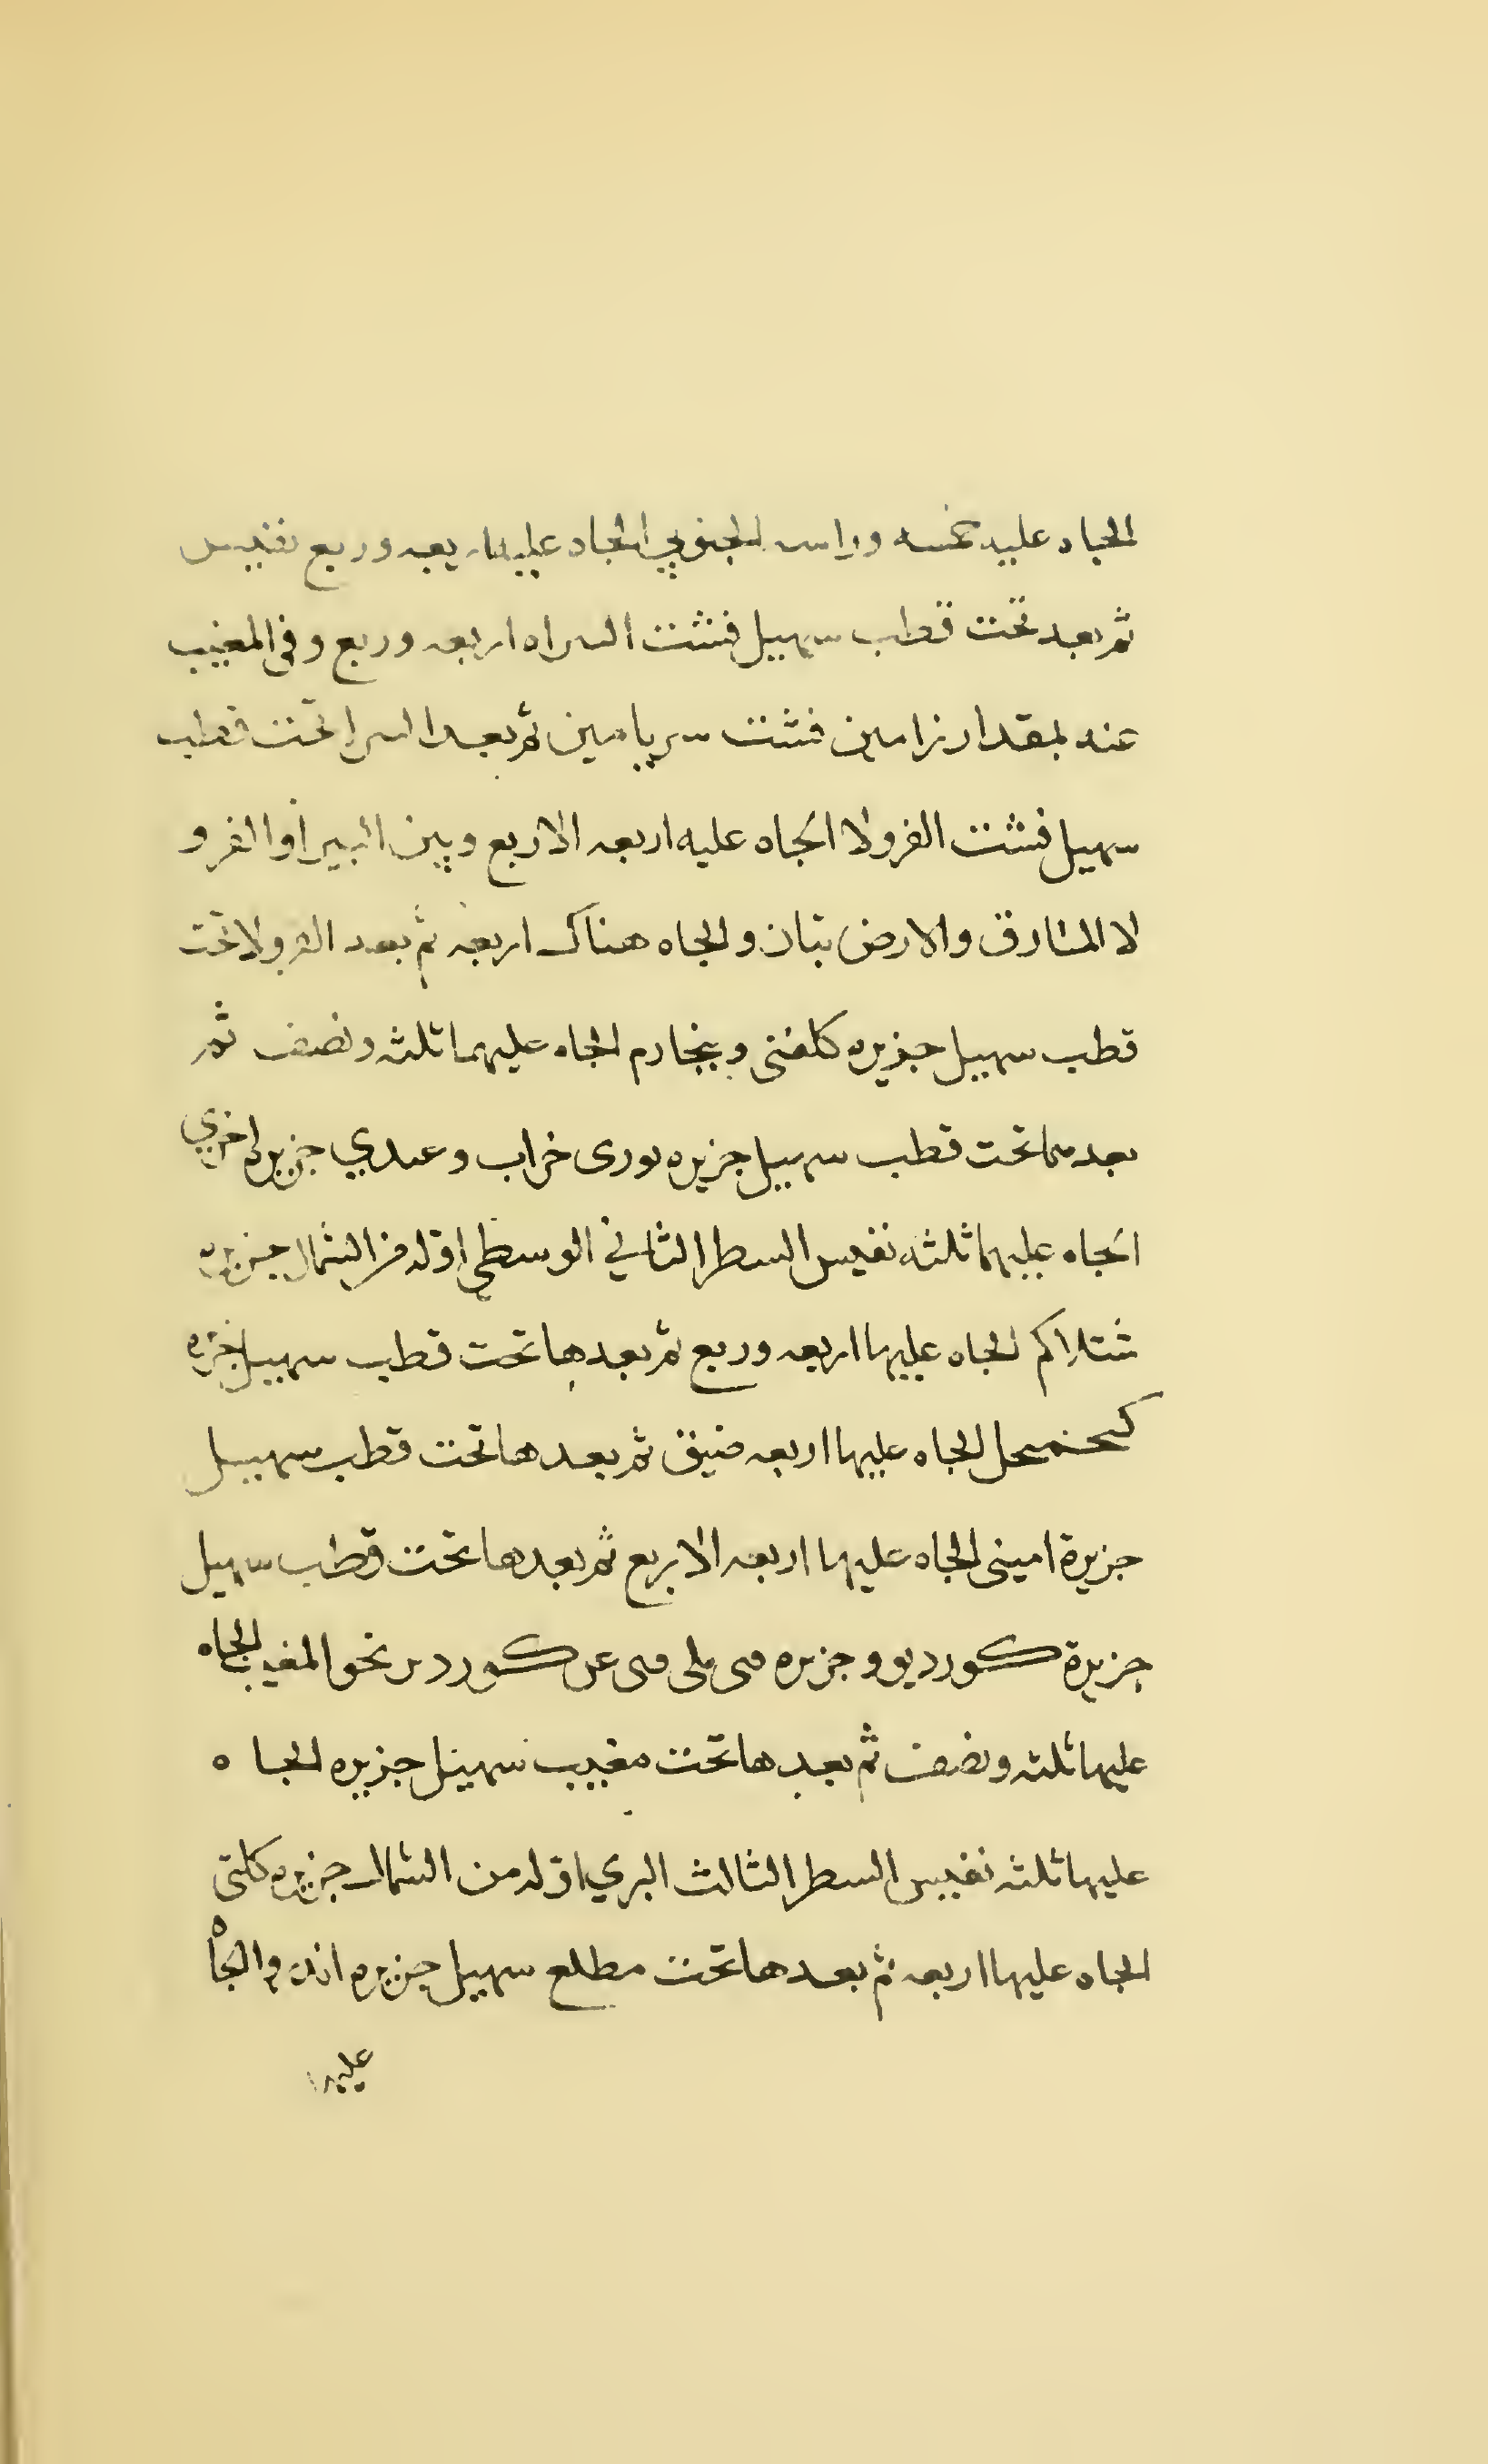 الجاه عليه خمسه وراسه الجنوبي الجاه عليه اربعه وربع نفيس
ثم بعد تحت قطب سهيل فشت السراه اربعه وربع وفى المغيب
عنه بمقدار زامين فشت سربامين ثم بعد السرا تحت قطب
سهيل فشت الفرولا الجاه عليه اربعه الاربع وبين البيراوا الفرو
لا المشارق والارض تبان والجاه هناك اربعه ثم بعد الفرولا تحت
قطب سهيل جزيره كلفنى وبنجارم الجاه عليهما ثلثه ونصف ثم
بعدهما تحت قطب سهيل جزيره بورى خراب وعبدي جزيره اخري
الجاه عليهما ثلثه نفيس السطر الثاني الوسطي اوله من الشمال جزيره
شتلاكم الجاه عليها اربعه وربع ثم بعدها تحت قطب سهيل جزيره
الجاه عليها اربعه ضيق ثم بعدها تحت قطب سهيل
جزيرة امينى الجاه عليها اربعه الا ربع ثم بعدها تحت قطب سهيل
جزيرة كورديو وجزيره فى ملى فى عن كورديو نحو المغيب الجاه
عليها ثلثه ونصف ثم بعدها تحت مغيب سهيل جزيره الجاه
عليها ثلثه نفيس السطر الثالث البري اوله من الشمال جزيره كلتى
الجاه عليها اربعه ثم بعدها تحت مطلع سهيل جزيره اندرو الجاه
عليها